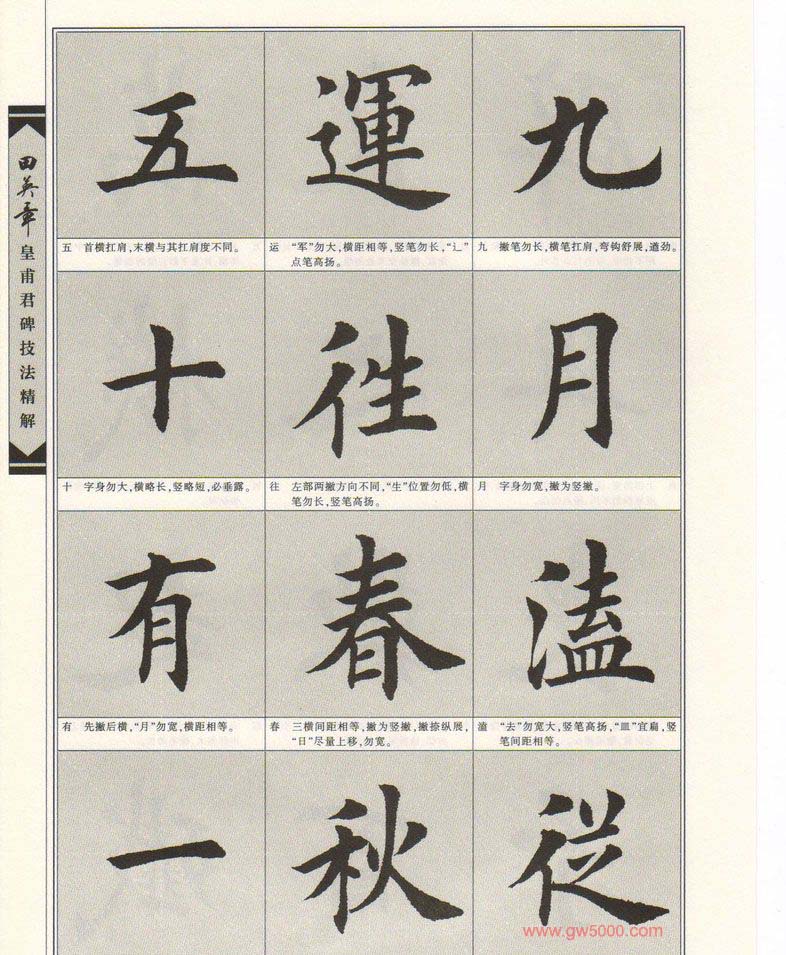 田英章 皇甫君碑技法精解
九
九 撇笔勿长,横笔扛肩,弯钩舒展,遒劲。
月
月 字身勿宽,撇为竖撇。
溘
溘 “去”勿宽大,竖笔高扬,“皿”宜扁,竖
笔间距相等。
従
運
运 “军”勿大,横距相等,竖笔勿长,“辶”
点笔高扬。
徃
往 左部两撇方向不同,“生”位置勿低,横
笔勿长,竖笔高扬。
春
春 三横间距相等,撇为竖撇,撇捺纵展,
“日”尽量上移,勿宽。
秋
五
五 首横扛肩,末横与其扛肩度不同。
十
十 字身勿大,横略长,竖略短,必垂露。
有
有 先撇后横,“月”勿宽,横距相等。
一
www.gw5000.com